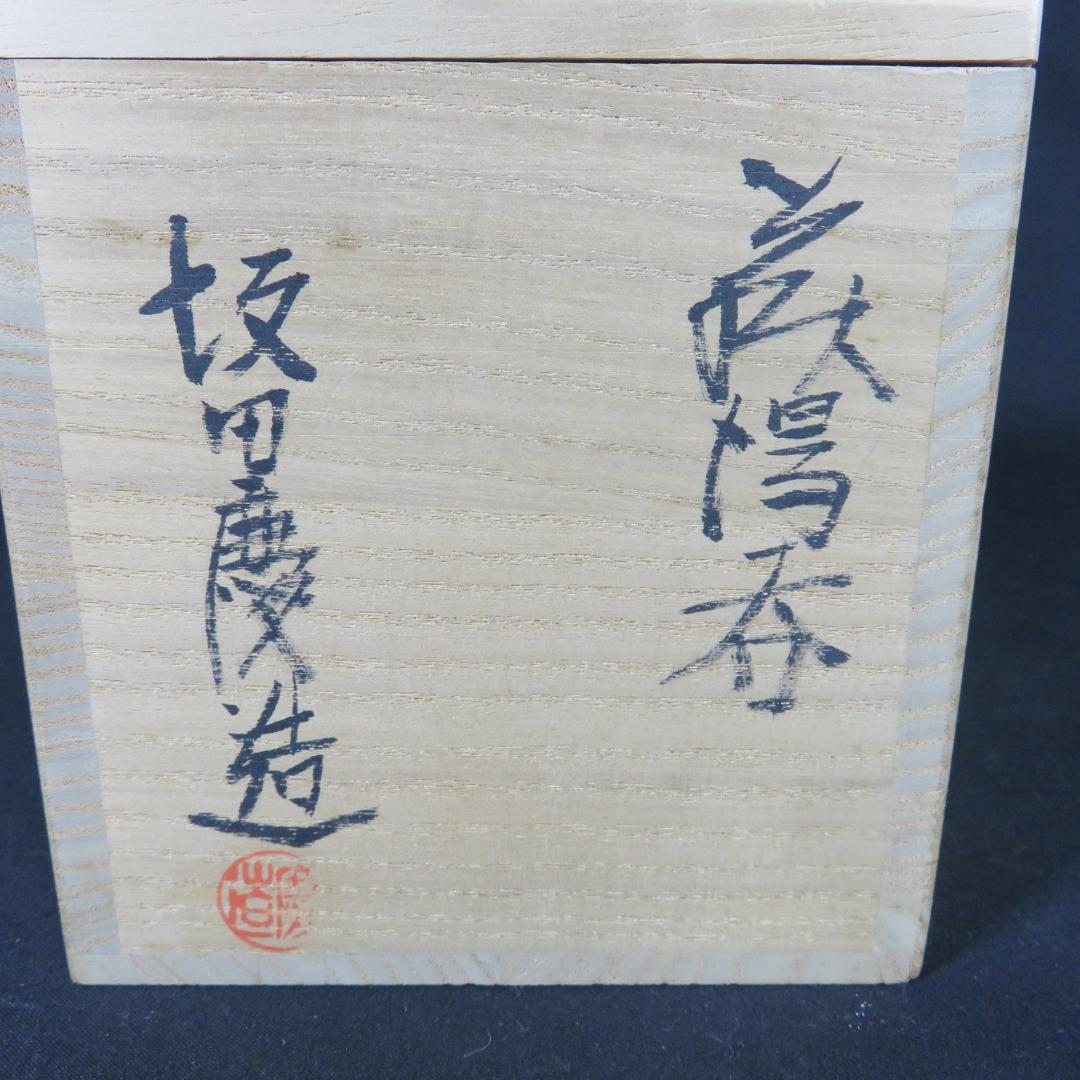 萩湯呑
坂田慶造